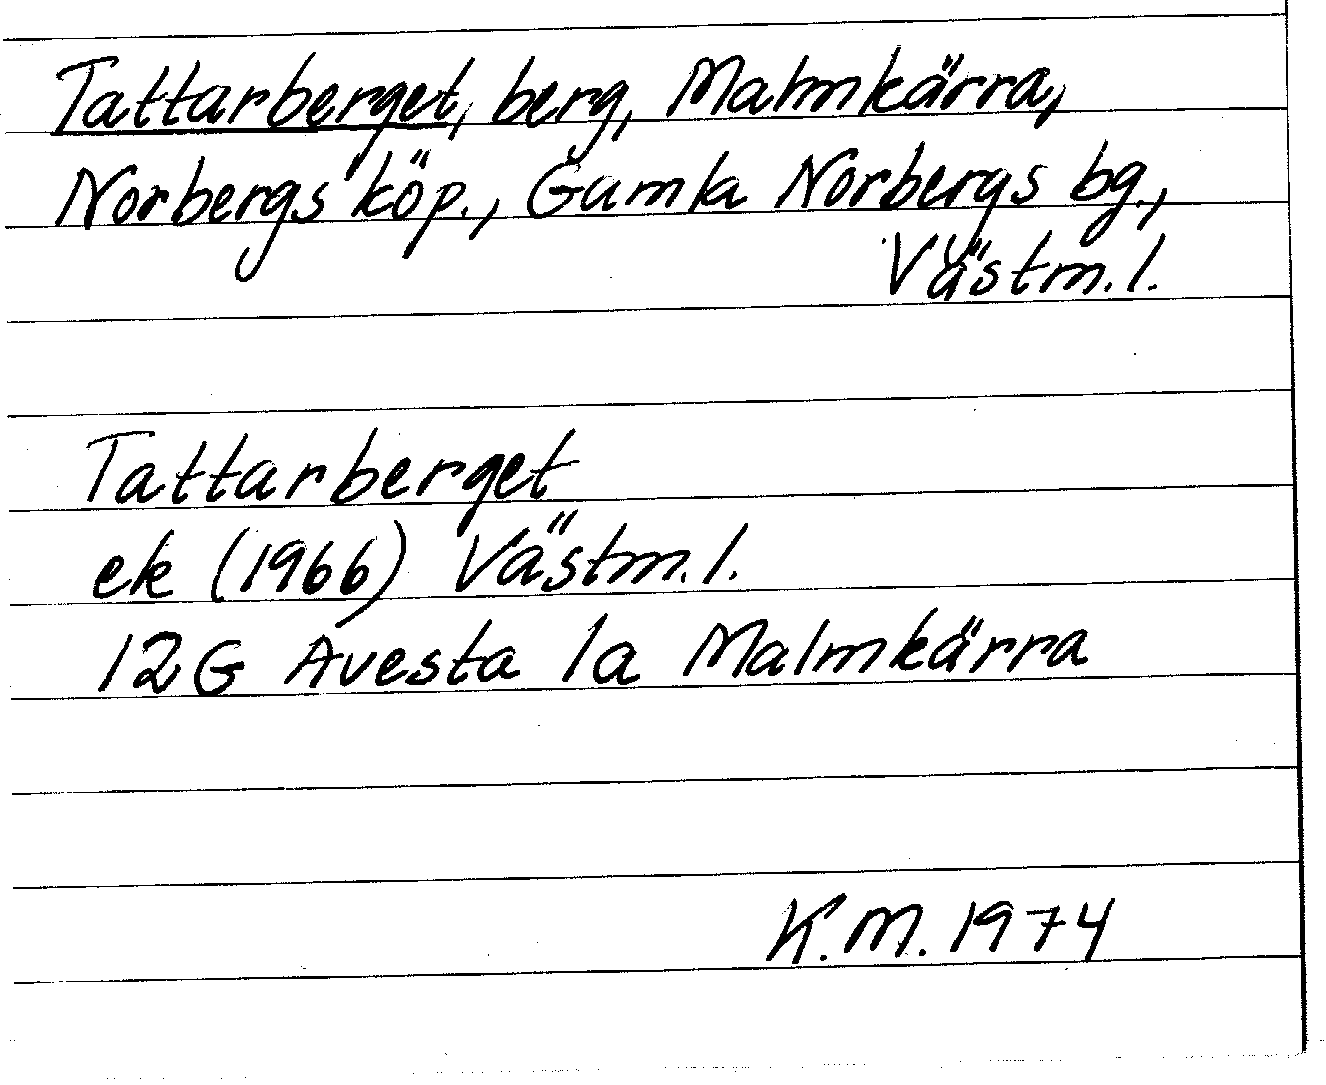 Tattarberget, berg, Malmkärra,
Norbergs köp., Gamla Norbergs bg.,
Västm.l.
Tattarberget
ek (1966) Västm.l.
12G Avesta 1a Malmkärra
K.M. 1974